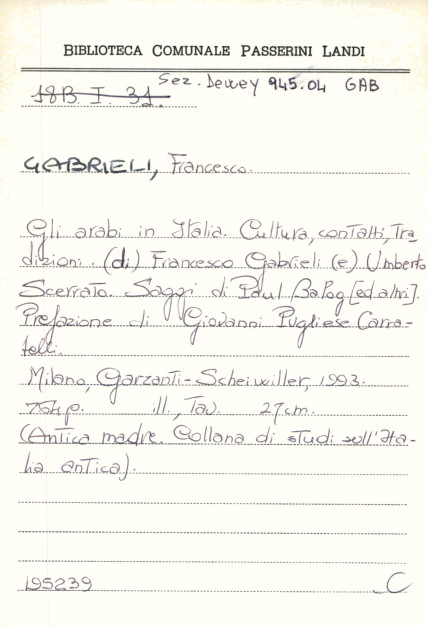 BIBLIOTECA COMUNALE PASSERINI LANDI
Sez. Dewey 945.04 GAB
18B. I. 31.
GABRIELI, Francesco.
Gli arabi in Italia. Cultura, contatti, Tra
dizioni. (di) Francesco Gabrieli (e) Umberto
Scerrato. Saggi di Paul Balog [ed altri].
Prefazione di Giovanni Pugliese Carra-
telli.
Milano, Garzanti-Scheiwiller, 1993.
764 p. ill., Tav. 27 cm.
(Antica madre. Collana di studi sull'Ita-
lia antica).
195239 C